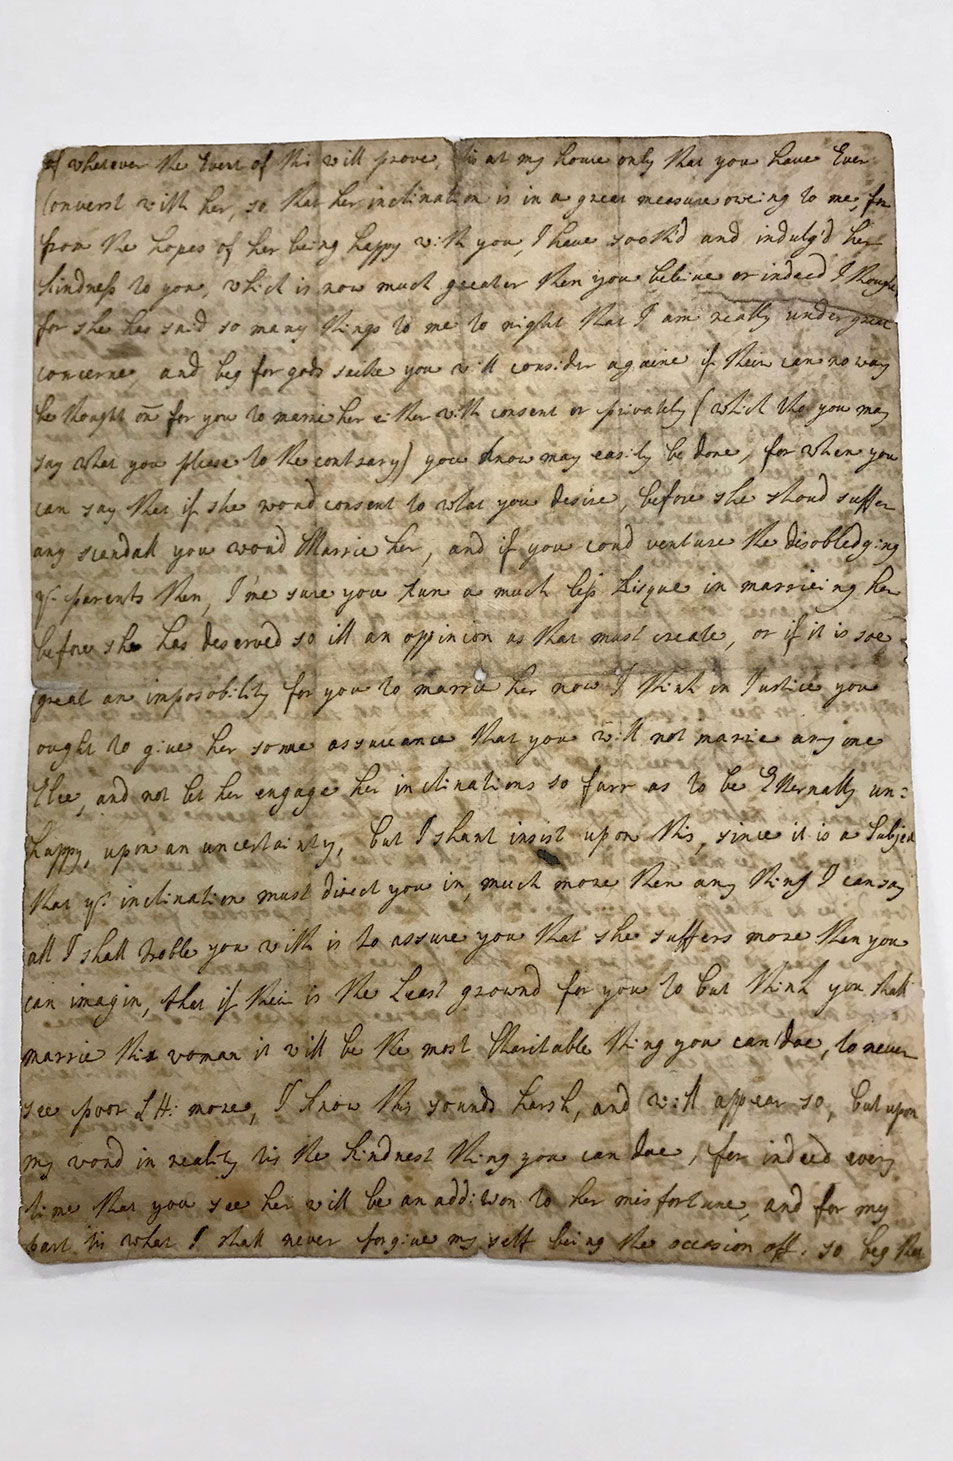 of whatever the Event of this will prove, tis at my house only that you have Ever
Converst with her, so that her inclination is in a great measure oweing to me, for
from the hopes of her being happy with you, I have sooth'd and indulg'd her
kindness to you, which is now much greater then you believe or indeed I thought
for she has said so many things to me to night that I am really under great
concerne, and beg for gods sacke you will consider againe if their can no way
be thought on for you to marrie her either with consent or privately (which tho you may
say what you please to the contrary) you know may easily be done, for when you
can say that if she woud consent to what you desire, before she shoud suffer
any scandall you wou'd Marrie her, and if you coud venture the disobledging
yr parents then, I'me sure you Run a much less Risque in marrieing her
before she has deserved so ill an oppinion as that must create, or if it is soe
great an imposobility for you to marrie her now I think in Justice you
ought to give her some assureance that you will not marrie any one
Else, and not let her engage her inclinations so farr as to be Etternally un=
happy, upon an uncertainty, but I shant insist upon this, since it is a Subject
that yr inclination must direct you in, much more then any thing I can say
all I shall troble you with is to assure you that she suffers more then you
can imagin, that if their is the Least ground for you to but think you shall
marrie this woman it will be the most Charitable thing you can doe, to never
see poor LH: more, I know this sounds harsh, and will appear so, but upon
my word in reality tis the kindnest thing you can doe, for indeed every
time that you see her will be an addition to her misfortune, and for my
part tis what I shall never forgive my self being the occasion off, so beg that